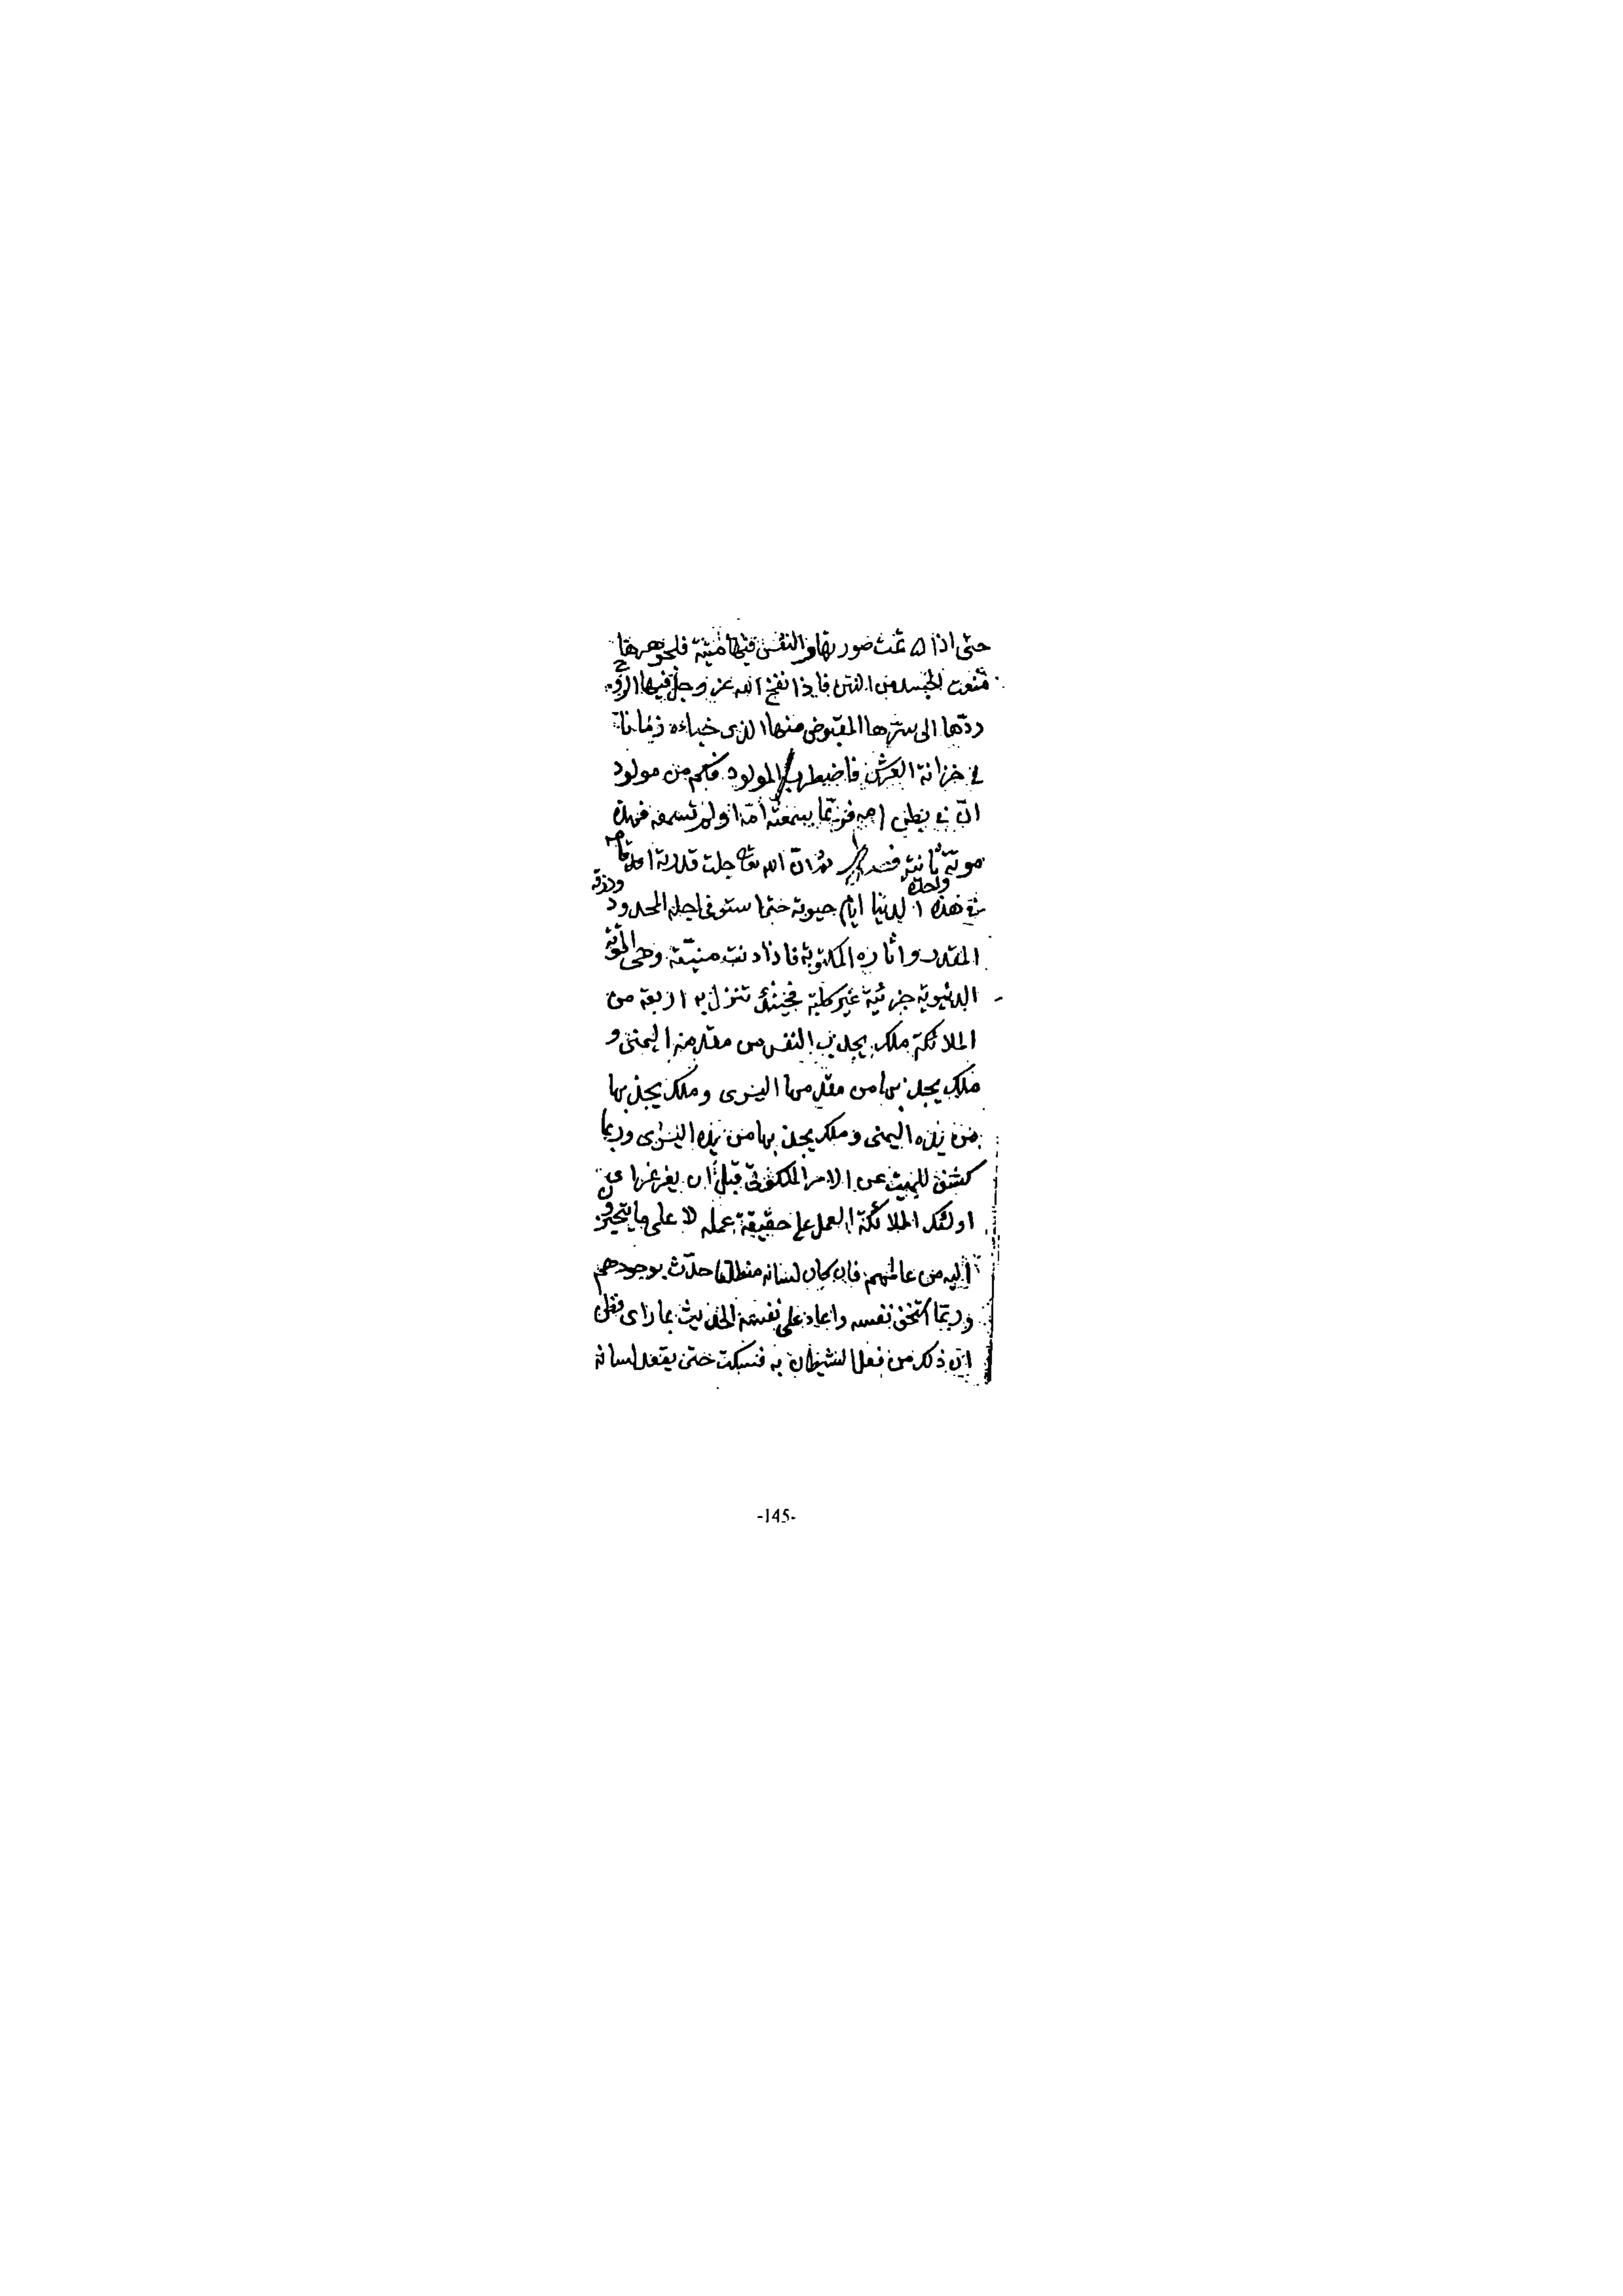 حتى اذا تمت صورتها والنفس فيها ميتة فلجوهرها
منعت الجسد من النتن فاذا نفخ الله عز وجل فيها الروح
ردها الى سرها المقبوض منها الذى خباءه زمانا
في خزانة العرش فاضطرب المولود فكم من مولود
انّ في بطن امه فربما يسمعته امه او لم تسمعه فهذه
موتة ثانية ثم انّ الله تعا جلت قدرته اقامه
في هذه الدنيا ايام حيوته حتى استوفى اجله المحدود ورزقه
المقدر واثاره المكتوبة فاذا دنت منيته وهى الموتة
الدنيوية جزئية غير كلية فحينئذ تنزل به اربعة من
الملائكة ملك يجذب النفس من مقدمة اليمنى و
ملك يجذبها من مقدمها اليسرى وملك يجذبها
من يده اليمنى وملك يجذبها من يده اليسرى وربما
كشف للميت عن الامر الملكوتى قبل ان يغرغر
اولئك الملائكة العمل على حقيقة عمله لا على ما يتحيزون
اليه من عالمهم فان كان لسانه منطلقا حدّث بوجودهم
وربما اعاد على نفسه الحديث بما راى فظن
ان ذلك من فعل الشيطان به فسكت حتى يعقد لسانه
-145-